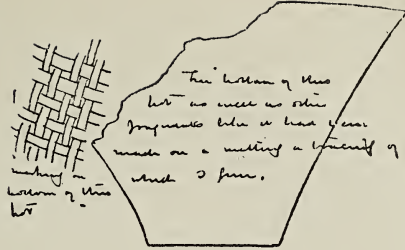 The bottom of this
pot as well as other
fragments like it had been
made on a matting a tracing of
which I give.
matting on
bottom of this
pot